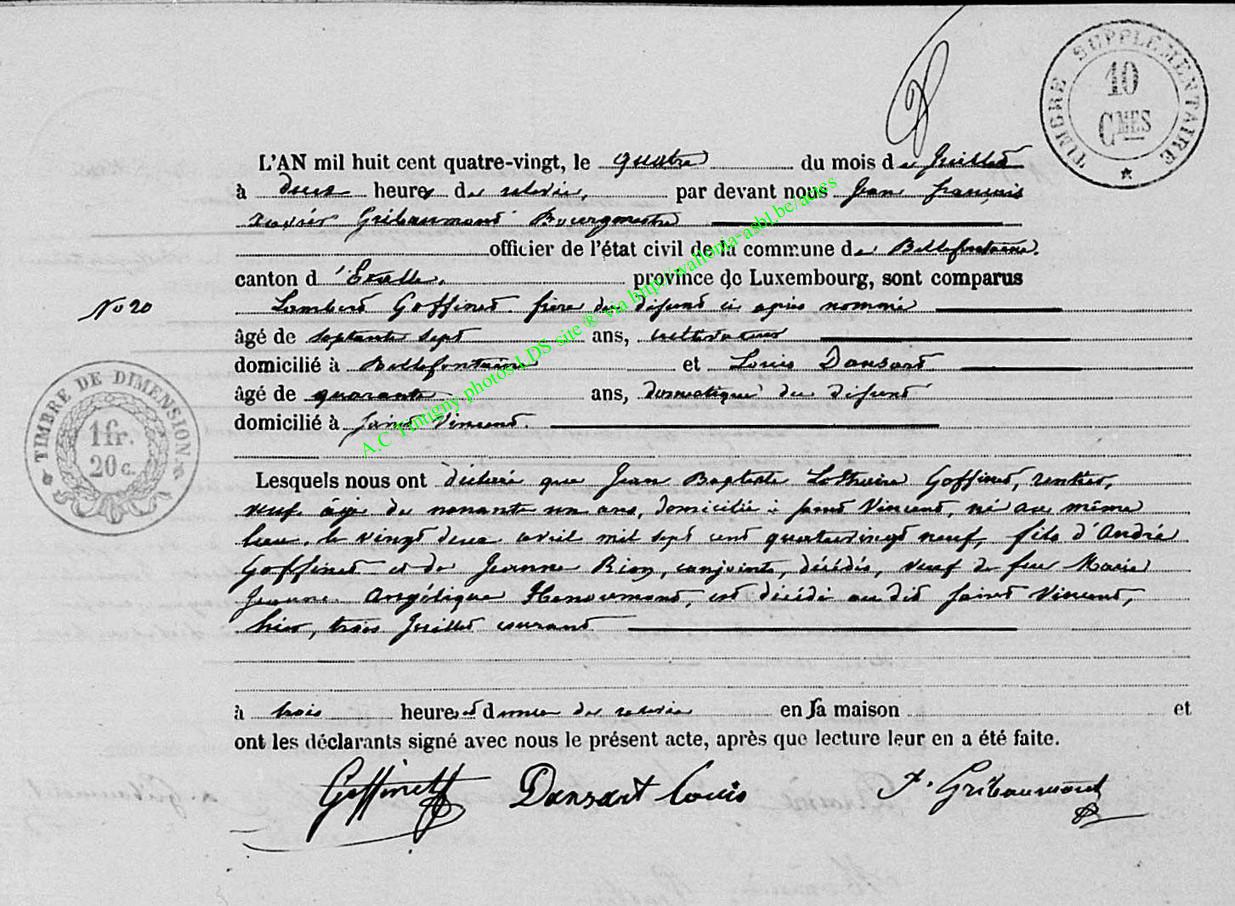 TIMBRE SUPPLEMENTAIRE
10
CMES
L'AN mil huit cent quatre-vingt, le quatre du mois de Juillet
à deux heures de relevée, par devant nous Jean françois
Xavier Gribaumont Bourgmestre
officier de l'état civil de la commune de Bellefontaine.
canton d'Etalle. province de Luxembourg, sont comparus
No 20
Lambert Goffinet frère du défunt ci après nommé
âgé de septante sept ans, cultivateur
domicilié à Bellefontaine et Louis Dansart
âgé de quarante ans, domestique du défunt
domicilié à Saint Vincent.
TIMBRE DE DIMENSION
1 fr.
20 c.
Lesquels nous ont déclaré que Jean Baptiste Goffinet, rentier,
veuf âgé de nonante un ans, domicilié à Saint Vincent, né au même
lieu, le vingt deux avril mil sept cent quatrevingt neuf, fils d'André
Goffinet et de Jeanne Rion, conjoints, décédés, veuf de feu Marie
Jeanne Angélique Hanoumont, est décédé au dit Saint Vincent,
hier, trois Juillet courant
à trois heures du de relevée en sa maison et
ont les déclarants signé avec nous le présent acte, après que lecture leur en a été faite.
Goffinet Dansart Louis X. Gribaumont
A.C Tintigny photos LDS site ® via http://wallonia-asbl.be/actes